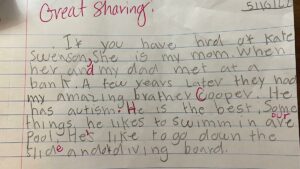 Great Sharing!
5/11/
If you have hred of Kate
Swenson, She is my mom when
her and my dad met at a
bank. A few years later they had
my amazing brather Cooper. He
has autism. He is the best. Some
things he likes to swimm in our are
Pool. He's like to go down the
Slide and diving board.